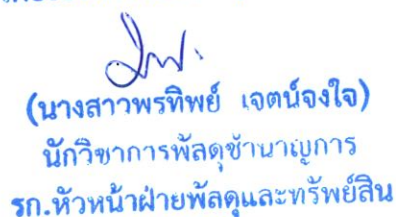 (นางสาวพรทิพย์ เจตน์จงใจ)
นักวิชาการพัสดุชำนาญการ
รก.หัวหน้าฝ่ายพัสดุและทรัพย์สิน